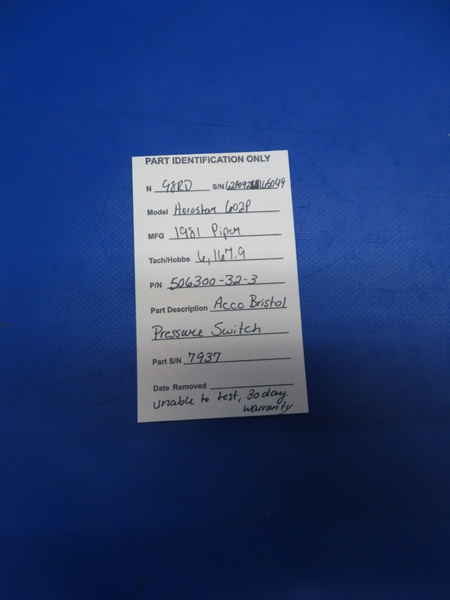 PART IDENTIFICATION ONLY
N 98RD S/N
Model Aerostar 602P
MFG 1981 Piper
Tach/Hobbs 6,167.9
P/N 506300-32-3
Part Description Acco Bristol
Pressure Switch
Part S/N 7937
Date Removed
unable to test, 30 day
warranty